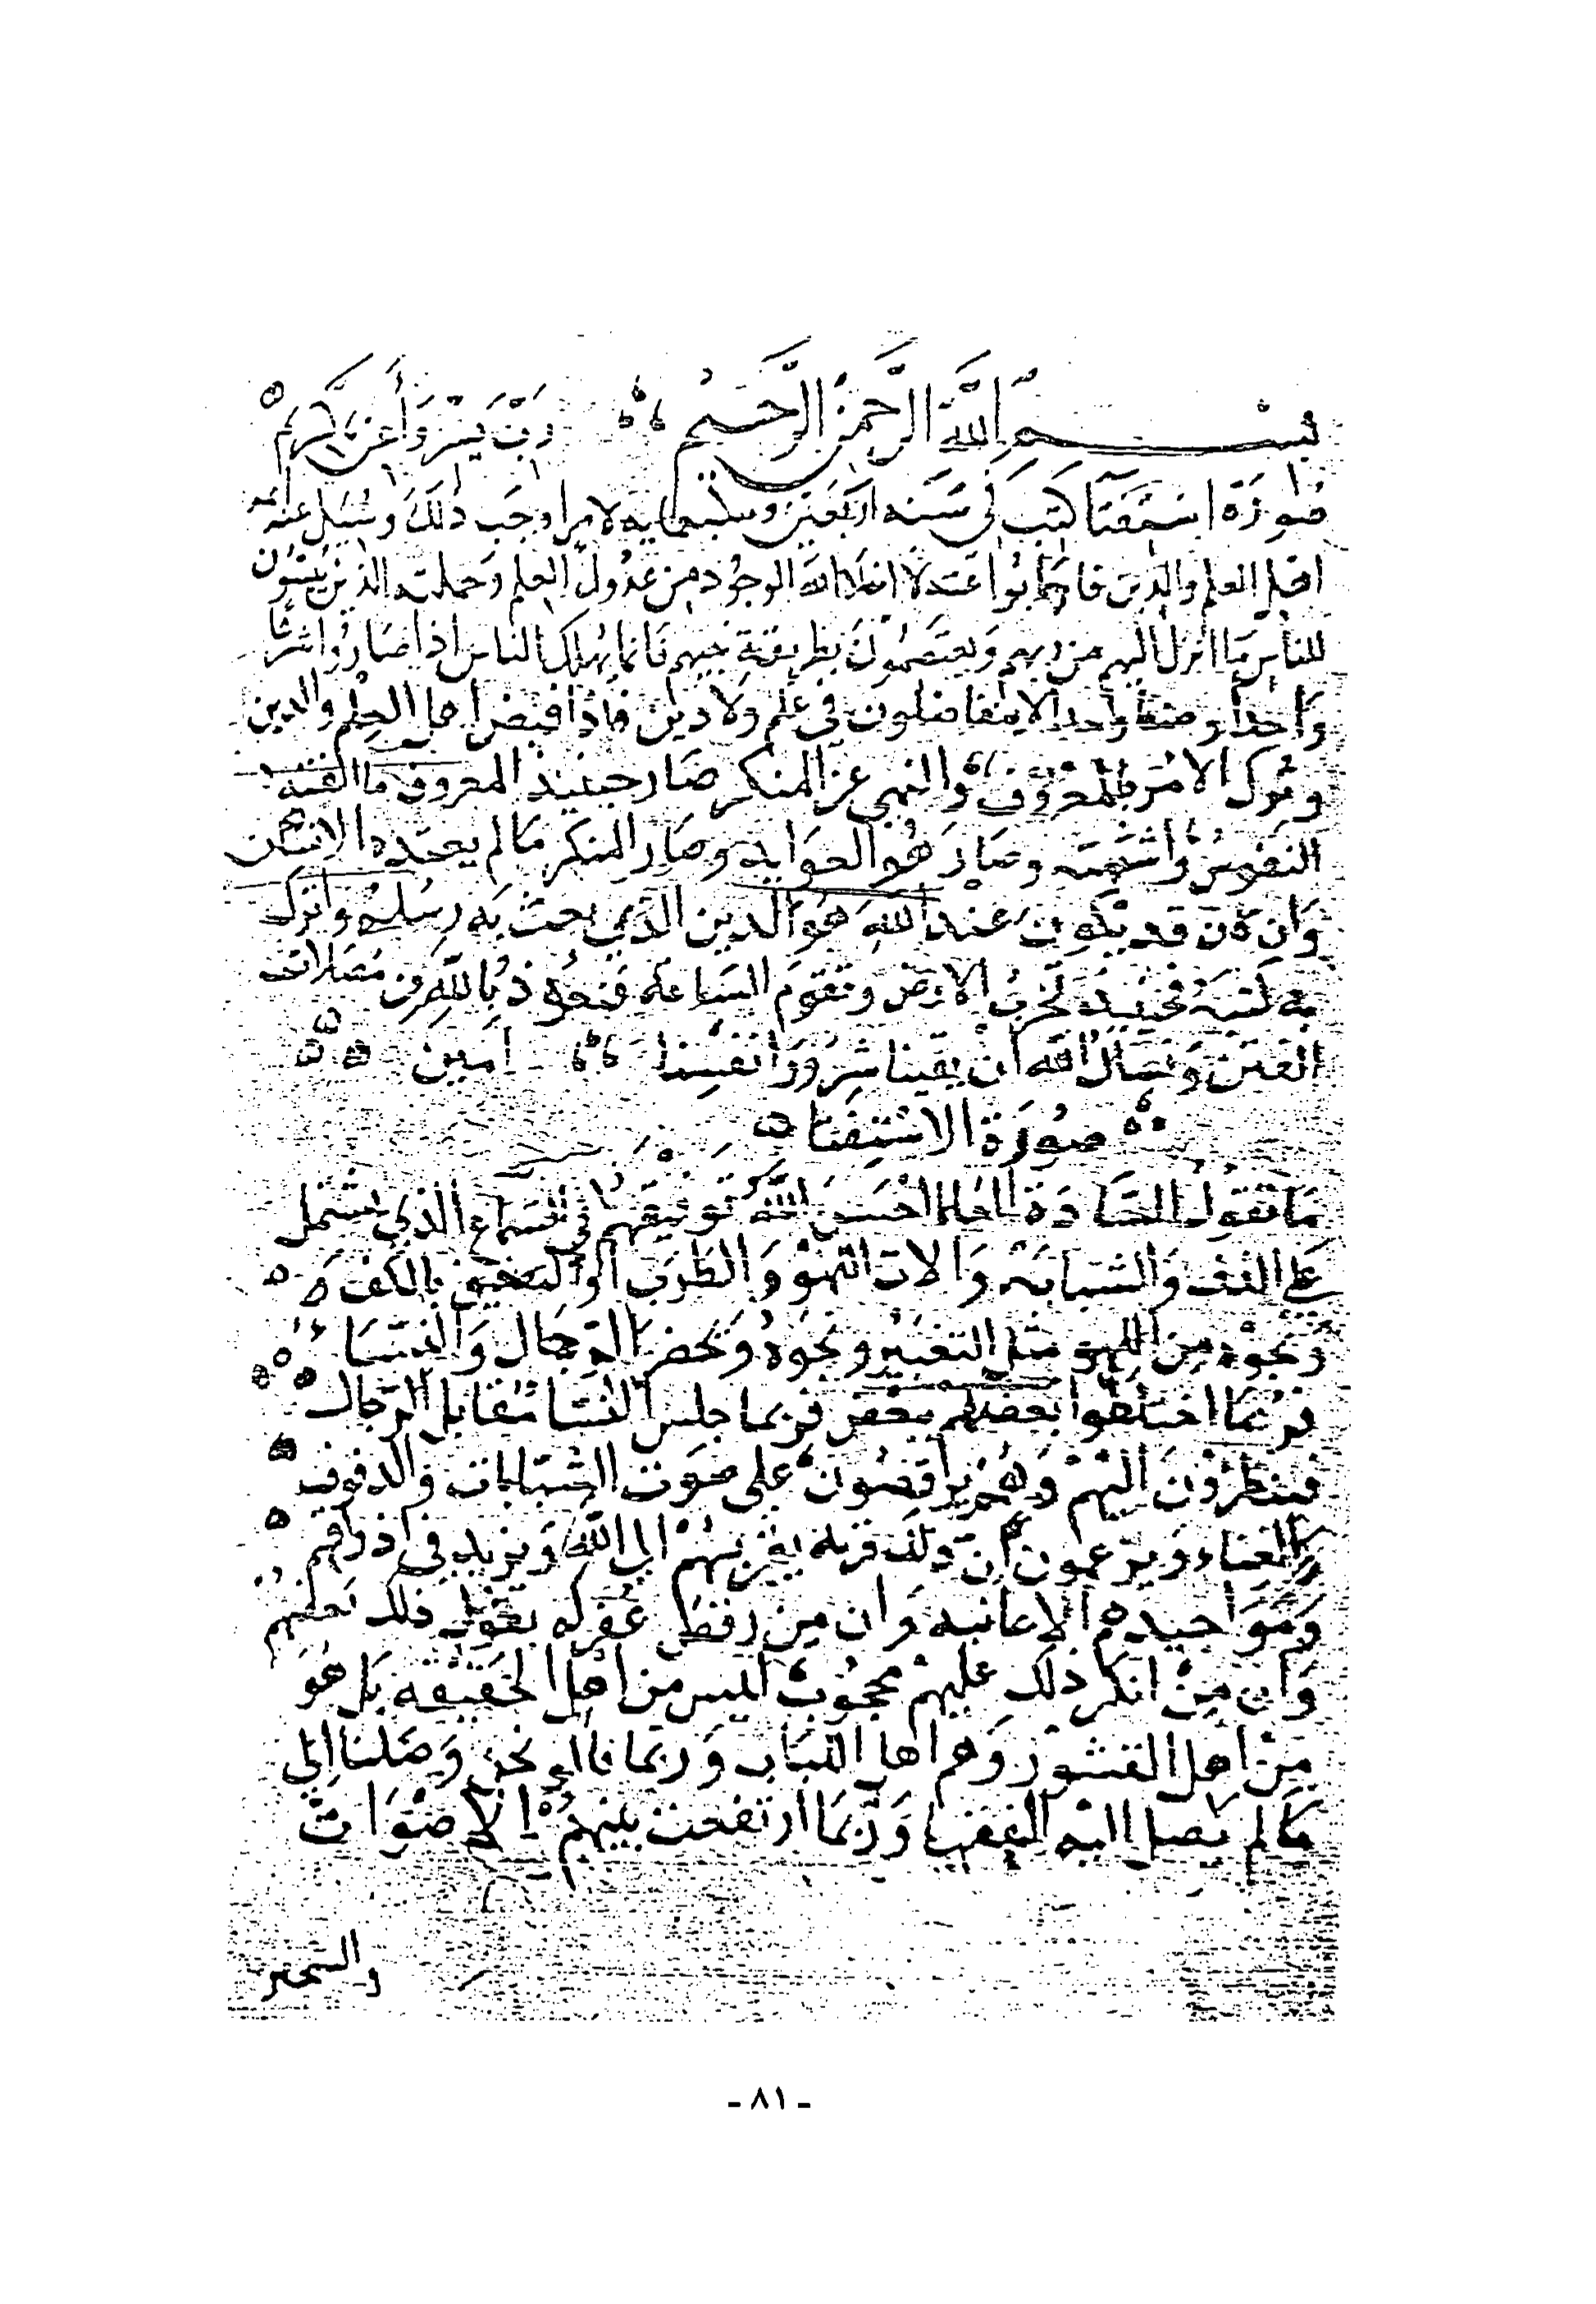 بسم الله الرحمن الرحيم رب يسر وأعن يا كريم
صورة استفتا كتب في سنه اربعين وسبعمايه لامر اوجب ذلك وسيل عنه
اهل العلم والدين فاجابوا الوجود من عدول العلم وحملته الذين يبينون
للناس ما انزل اليهم من ربهم ويعتصمون بطريقة نبيهم فانما يهلك الناس اذا صاروا شيئا
واحدا وصنفا واحدا لا يتفاضلون في علم ولا دين فاذا قبض اهل العلم والدين
وترك الامر بالمعروف والنهي عن المنكر صار حينيذ المعروف ما الفته
النفوس واشتهته وصار هو العوايد وصار المنكر مالم يعتده الانسان
وان كان قد يكون عند الله هو الدين الذي بعث به رسله وانزل
به كتبه فحينيذ تخرب الارض وتقوم الساعة فنعوذ بالله من مضلات
الفتن ونسال الله ان يقينا شرور انفسنا امين
صورة الاستفتا
ما تقول السادة العلما احسن الله توفيقهم في السماع الذي يشتمل
على الدف والشبابه والات اللهو والطرب او التصفيق بالكف
ونحوه من اللهو مثل التغبير ونحوه ويحضر الرجال والنسا
فربما اختلطوا بعضهم ببعض فربما جلس النسا مقابل الرجال
فينظرون اليهم وهم يرقصون على صوت الشبابات والدفوف
والغناء ويزعمون ان ذلك قربة يقربهم الى الله ويزيد في اذواقهم
ومواجيدهم الايمانيه وان من رقص غفر له بقول ذلك بعضهم
وان من انكر ذلك عليهم محجوب ليس من اهل الحقيقه بل هو
من اهل القشور وهم اهل اللباب وربما قالو نحن وصلنا الى
مالم يصل اليه الفقها وربما ارتفعت بينهم الاصوات
- ٨١ -